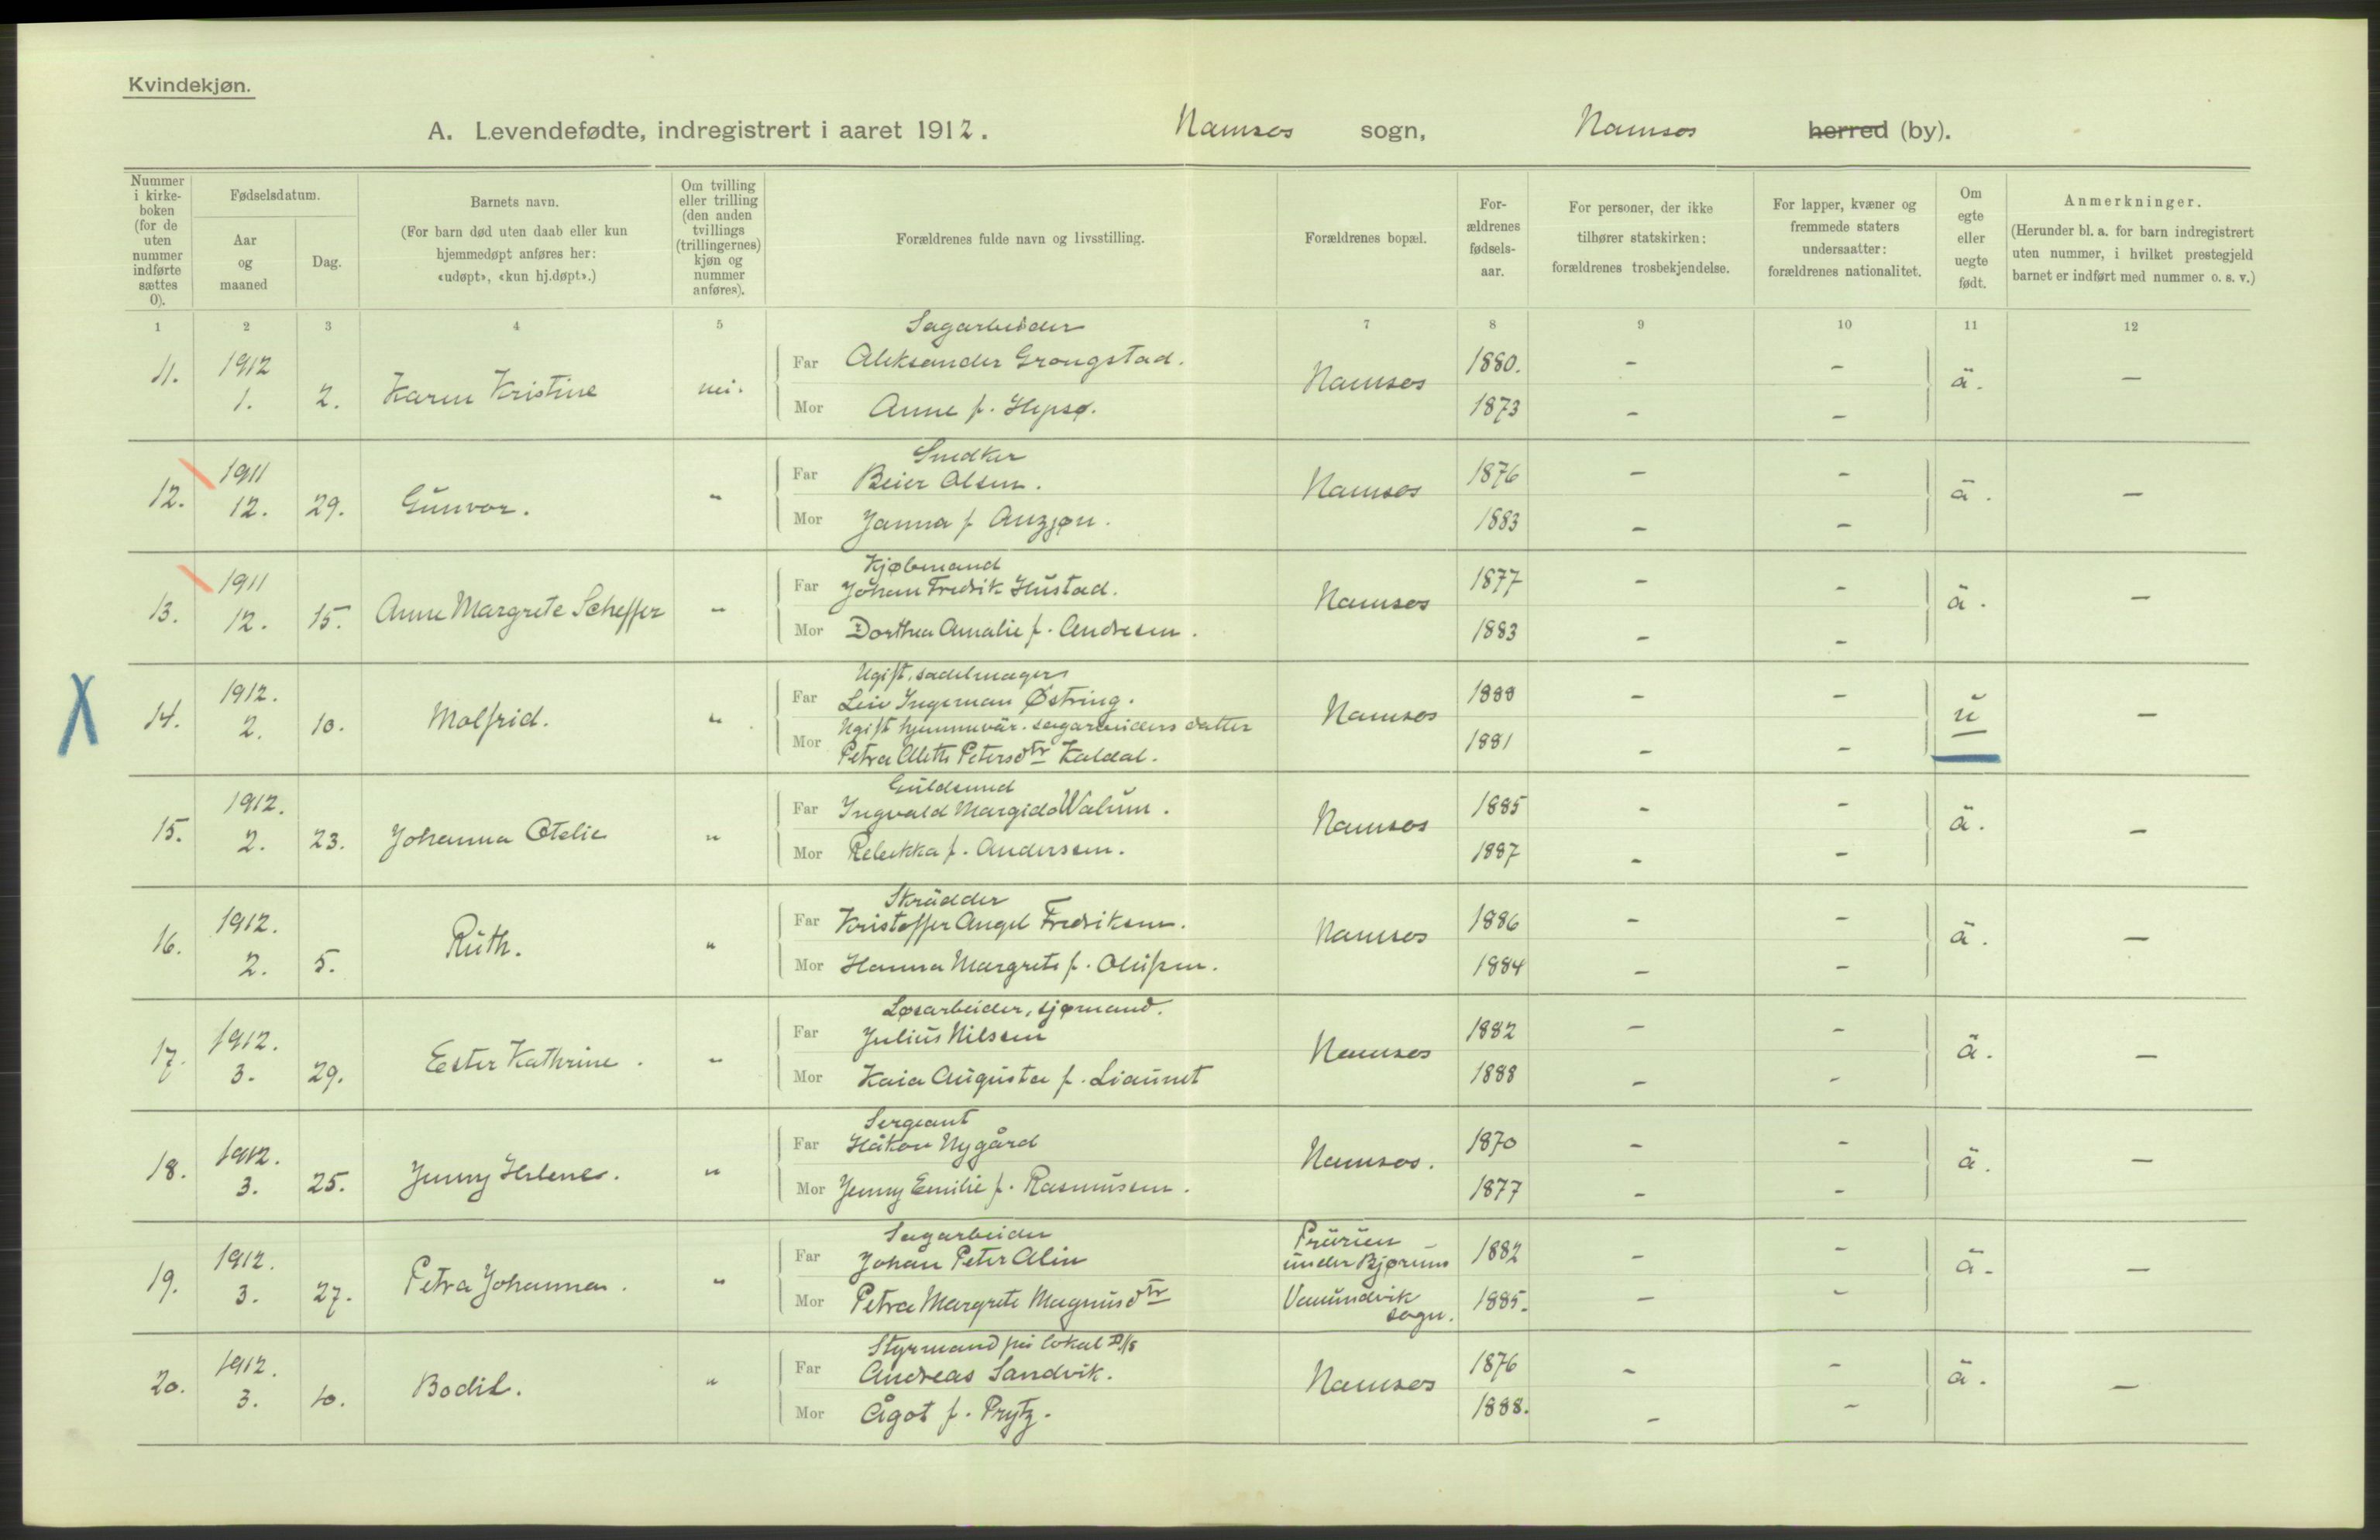 Kvindekjøn.
A. Levendefødte, indregistrert i aaret 1912. Namsos sogn, Namsos herred (by).
Nummer i kirke-boken (for de uten nummer indførte sættes 0).
Fødselsdatum.
Aar og maaned
Dag.
Barnets navn.
(For barn død uten daab eller kun hjemmedøpt anføres her: «udøpt», «kun hj.døpt».)
Om tvilling eller trilling (den anden tvillings (trillingernes) kjøn og nummer anføres).
Forældrenes fulde navn og livsstilling.
Forældrenes bopæl.
For-ældrenes fødsels-aar.
For personer, der ikke tilhører statskirken: forældrenes trosbekjendelse.
For lapper, kvæner og fremmede staters undersaatter: forældrenes nationalitet.
Om egte eller uegte født.
Anmerkninger.
(Herunder bl. a. for barn indregistrert uten nummer, i hvilket prestegjeld barnet er indført med nummer o. s. v.)
1 2 3 4 5 7 8 9 10 11 12
Sagarbeider
11. 1912 1. 2. Karen Kristine nei. Far Aleksander Grongstad. Namsos 1880. - - ä. -
Mor Anne f. Hepsø. 1873 - -
Snedker
12. 1911 12. 29. Gunvor. " Far Beier Olsen. Namsos 1876 - - ä. -
Mor Janna f. Auzjøn. 1883 - -
Kjøbmand
13. 1911 12. 15. Anne Margrete Scheffer " Far Johan Fredrik Hustad. Namsos 1877 - - ä. -
Mor Dorthea Amalie f. Andresen. 1883 - -
Ugift, sadelmager
X 14. 1912. 2. 10. Molfrid. " Far Leiv Ingeman Østring. Namsos 1888 - - u -
Ugift hjemmevär. sagarbeiders datter
Mor Petra Aleth Petersdtr Kaldal. 1881 - -
Guldsmed
15. 1912. 2. 23. Johanna Otelie " Far Ingvald Margido Walum. Namsos 1885 - - ä. -
Mor Rebekka f. Anderssen. 1887 - -
Skrädder
16. 1912. 2. 5. Ruth. " Far Kristoffer Angel Fredriksen. Namsos 1886 - - ä. -
Mor Hanna Margrete f. Olufsen. 1884 - -
Løsarbeider, sjømand.
17. 1912. 3. 29. Ester Kathrine. " Far Julius Nilssen Namsos 1882 - - ä. -
Mor Kaia Augusta f. Liaunet 1888 - -
Sergeant
18. 1912. 3. 25. Jenny Helene. " Far Håkon Nygård Namsos. 1870 - - ä. -
Mor Jenny Emilie f. Rasmussen. 1877 - -
Sagarbeider
19. 1912. 3. 27. Petra Johanna. " Far Johan Peter Alin Prärien under Bjørum 1882 - - ä. -
Mor Petra Margrete Magnusdtr Vemundvik sogn. 1885. - -
Styrmand på lokal D/S
20. 1912. 3. 10. Bodil. " Far Andreas Sandvik. Namsos 1876 - - ä. -
Mor Ågot f. Prytz. 1888. - -